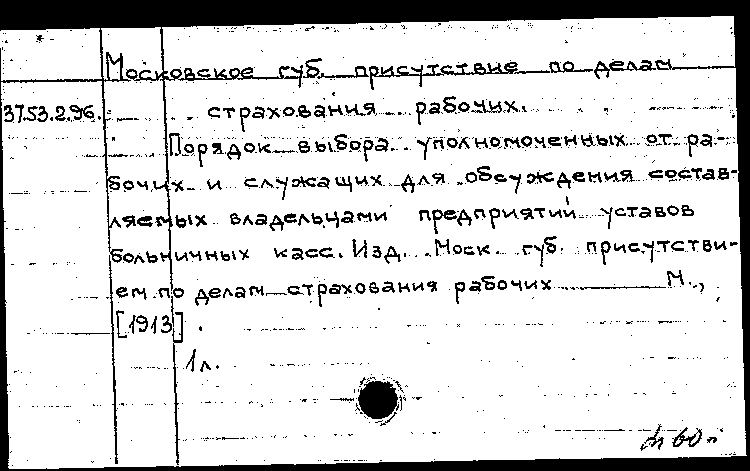 Московское губ. присутствие по делам
37.53.2.96. страхования рабочих.
Порядок выбора уполномоченных от ра-
бочих и служащих для обсуждения состав-
ляемых владельцами предприятий уставов
больничных касс. Изд. Моск. губ. присутстви-
ем по делам страхования рабочих М.,
[1913].
1 л.